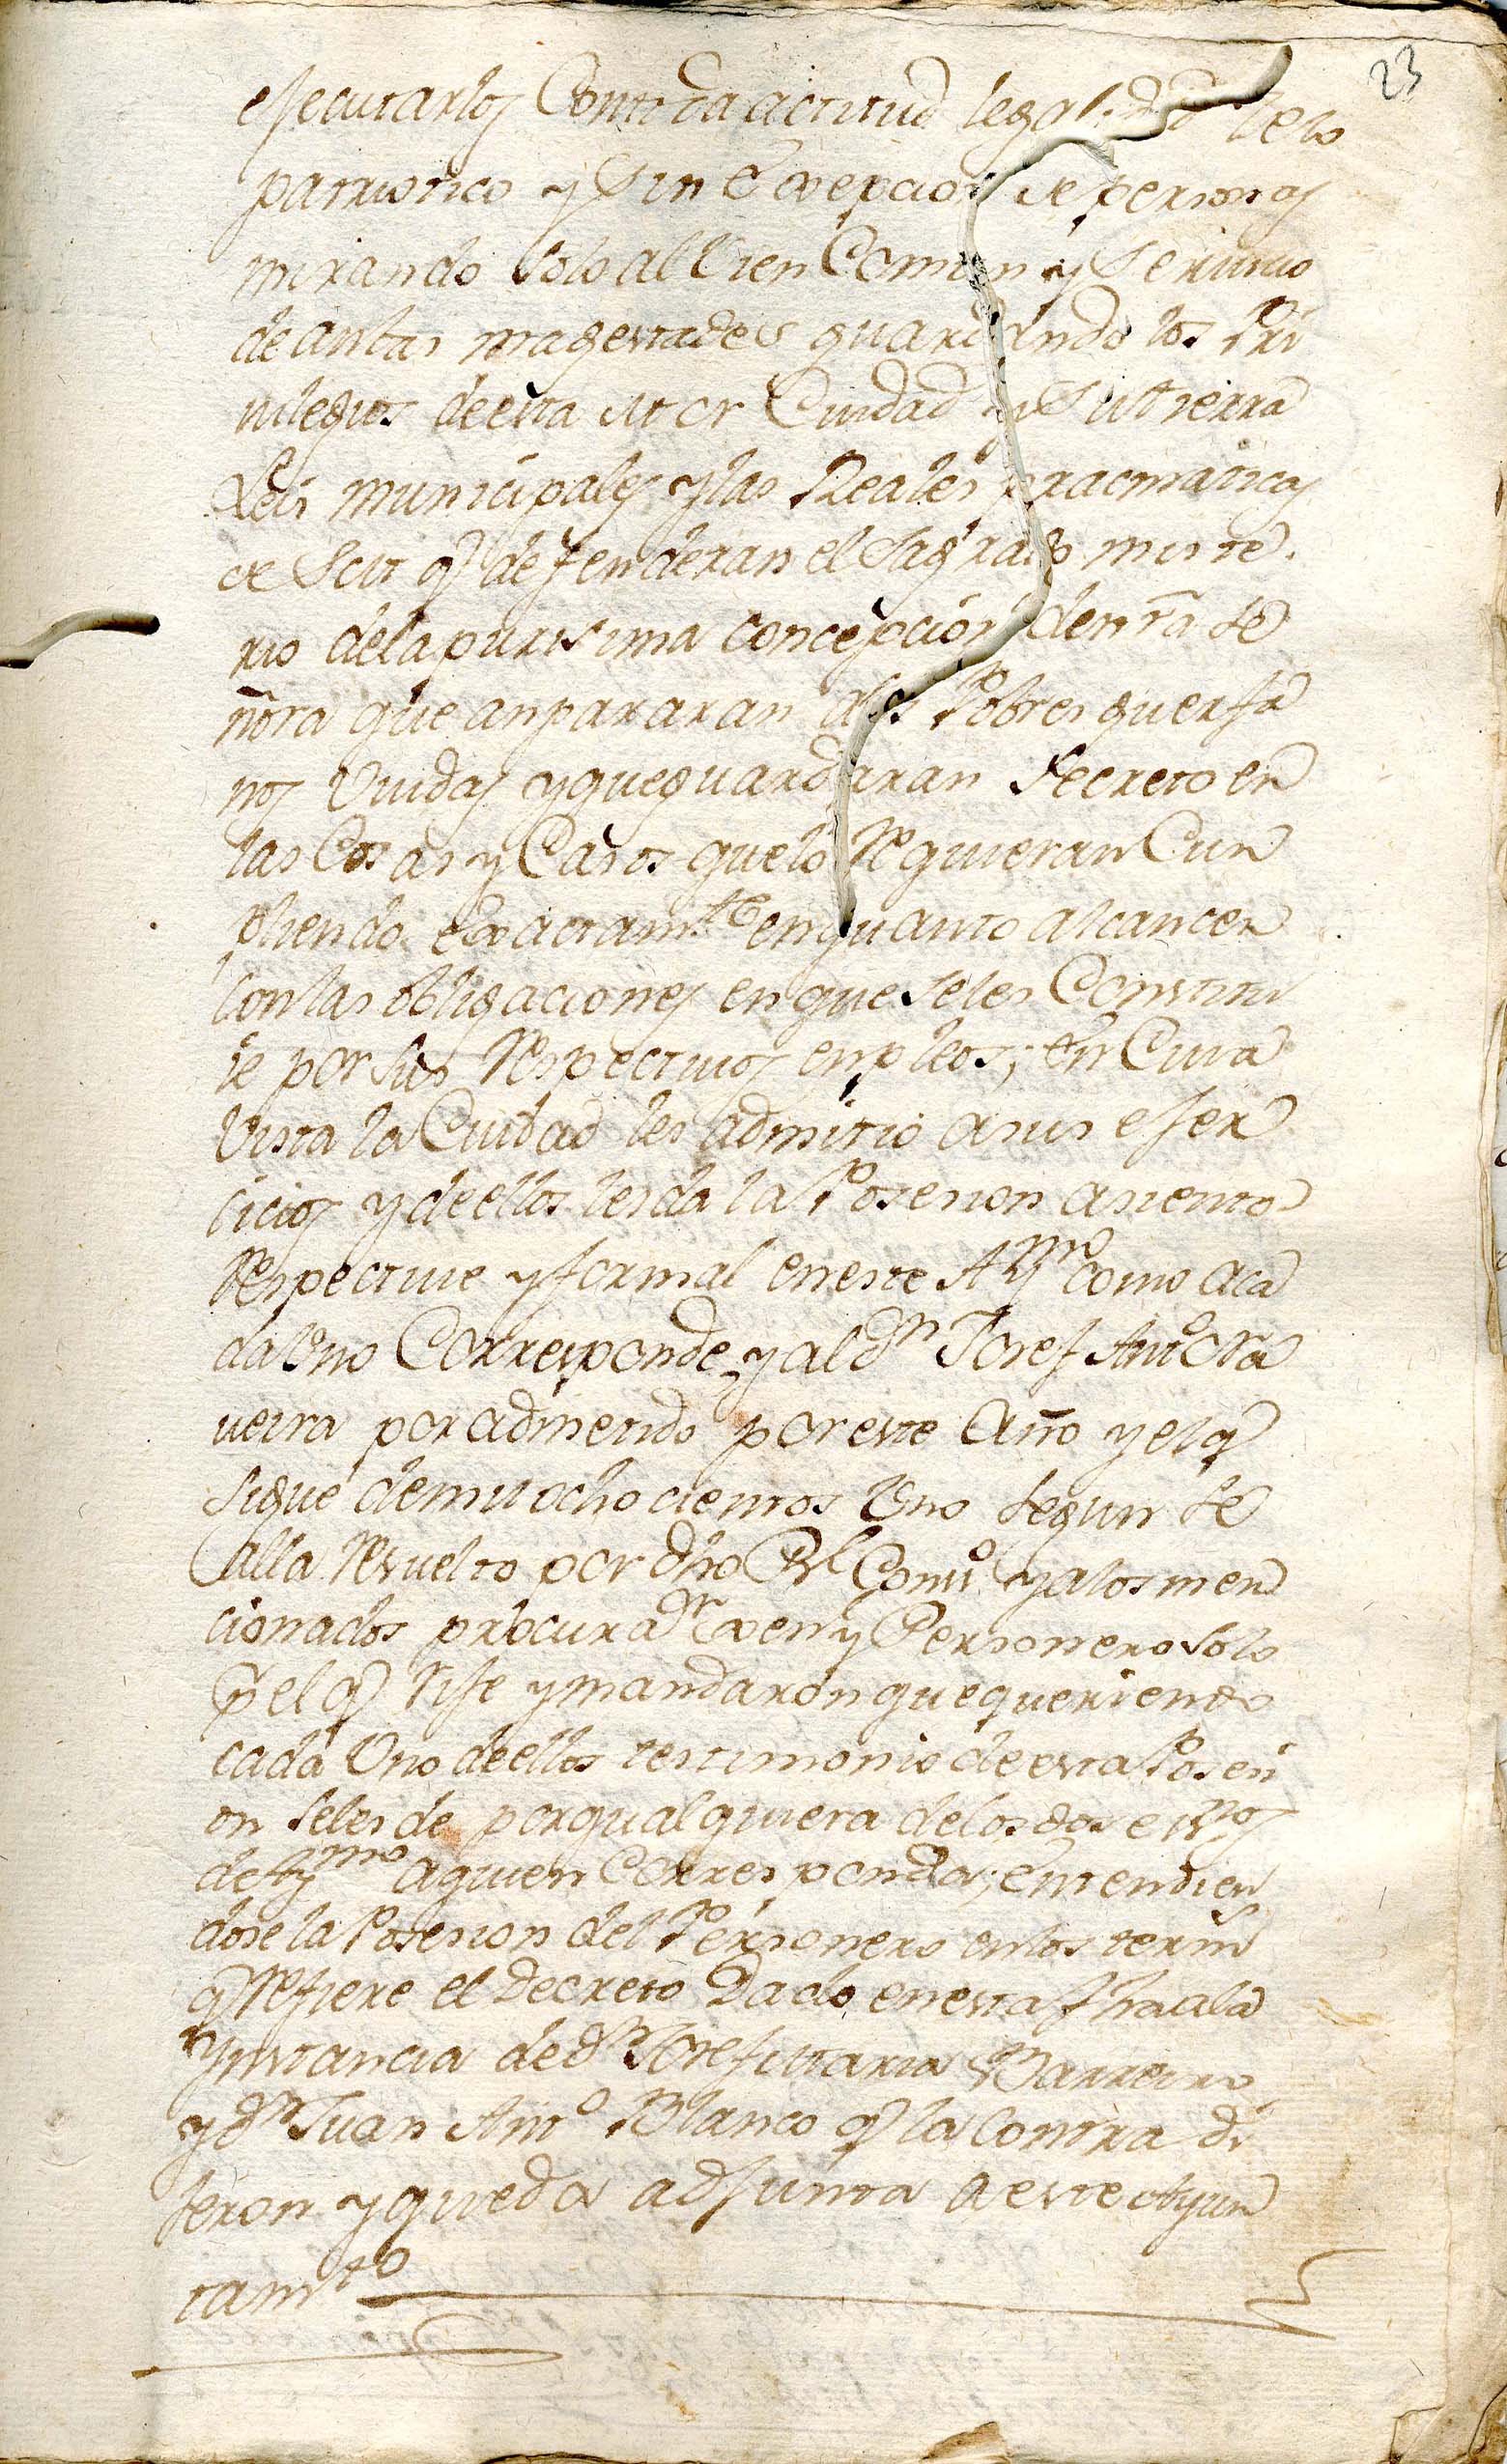 23
ejecutarlos Con toda actitud legalidad Zelo
patriotico y Sin Excepcion de personas
mirando Solo al Vien Comun y Seruicio
de anbas magestades guardando los Pri
uilegios de esta M N Ciudad y Su tierra
Leis municipales y las Reales pracmaticas
de Scit q.e defenderan el Sagrado miste
rio dela purisima concepcion de nra Se
ñora que anpararan alos Pobres guerfa
nos Viudas y que guardaran Secreto en
las Cosas y Casos que lo Requieran Cun
pliendo Exactam.te en quanto alcancen
con las obligaciones en que seles Constitu
ie por Sus Respectiuos enpleos; en Cuia
Vista la Ciudad les admitio a sus ejer
cicios y de ellos les da la Posesion asiento
Respectiue y formal en este Ay.mto como aca
da Uno Corresponde, y al d.n Josef Ant.o
ueira por admetido por este Año y el q.e
sigue de mil ocho cientos Uno segun se
alla Resuelto por dho Rl Cons.o y alos men
cionados procurad.r xen y Personero Solo
p.r el q.e Rije y mandaron que queriendo
cada Uno de ellos testimonio de esta Posesi
on seles de por qualquiera delos dos ess.nos
de Ay.mto a quien Corresponda; Entendien
dose la Posesion del Personero en los term.s
q.e Refiere el Decreto Dado en esta fha ala
Ynstancia de d.n Josef Maria Barreiro
y d.n Juan Ant.o Blanco q.e la Contra di
jeron y queda adjunta a este Ayun
tam.to